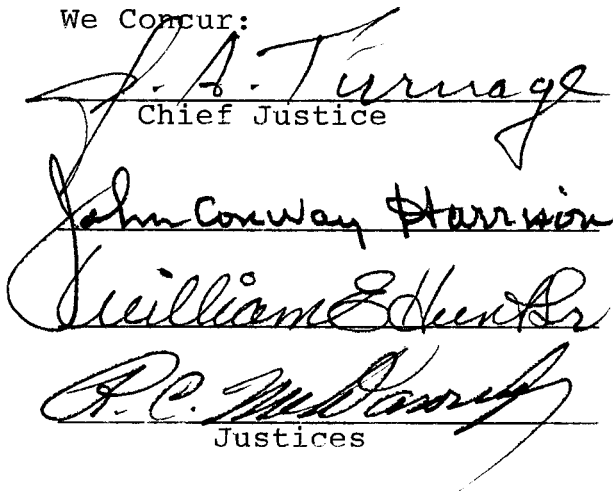 We Concur:
J. A. Turnage
Chief Justice
John Conway Harrison
William E Hunt Sr
R. C. McDonough
Justices